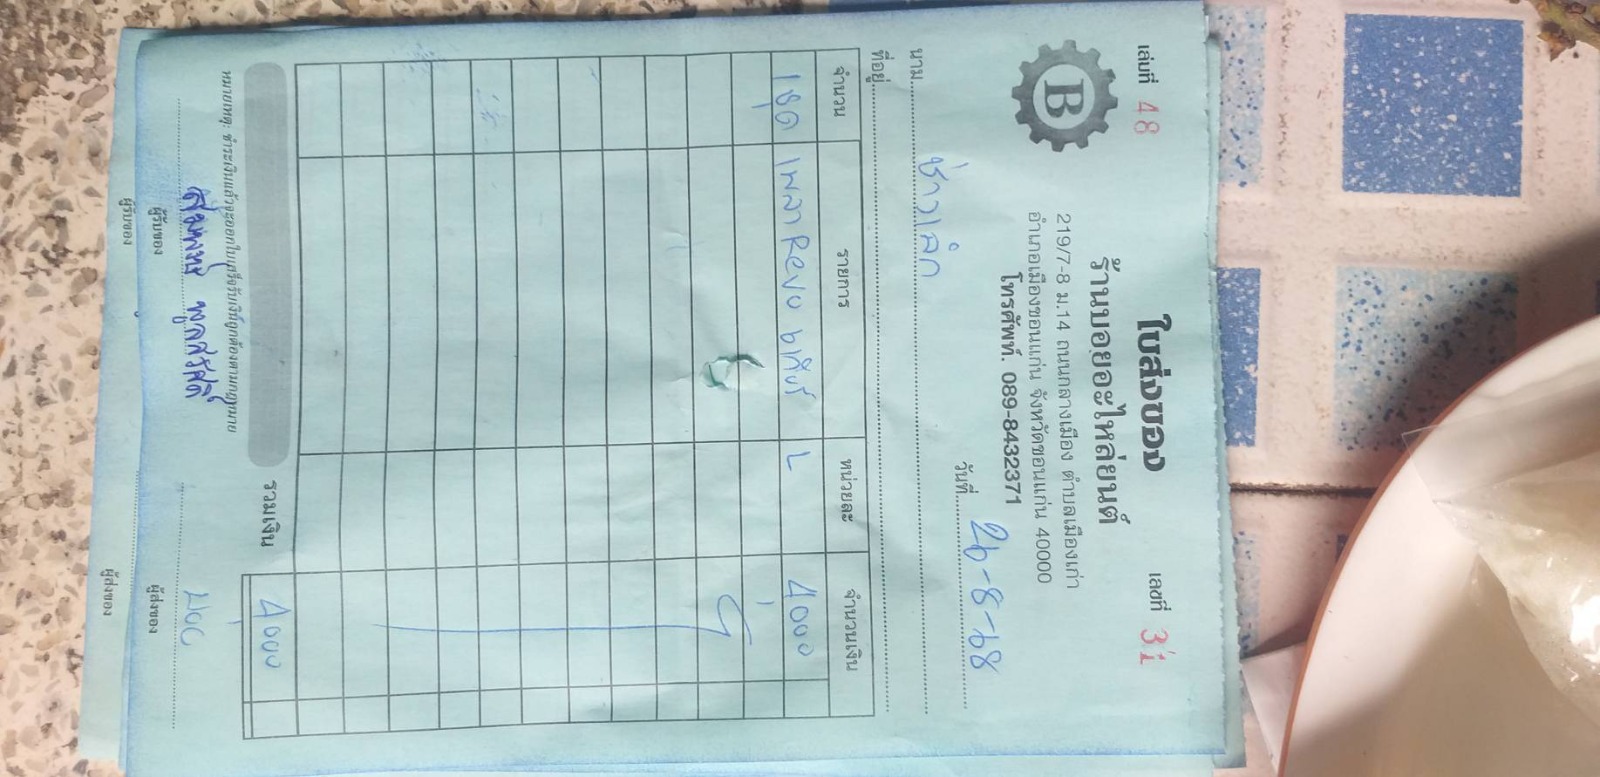 เล่มที่ 48
เลขที่ 31
B
ใบส่งของ
ร้านบอยอะไหล่ยนต์
219/7-8 ม.14 ถนนกลางเมือง ตำบลเมืองเก่า
อำเภอเมืองขอนแก่น จังหวัดขอนแก่น 40000
โทรศัพท์. 089-8432371
วันที่ 26-8-68
นาม ช่างเล็ก
ที่อยู่
จำนวน รายการ หน่วยละ จำนวนเงิน
1 ชุด เพลา Revo L 4,000
รวมเงิน 4,000
หมายเหตุ: ชำระเงินแล้วจะออกใบเสร็จรับเงินถูกต้องตามกฎหมาย
ผู้รับของ ผู้ส่งของ
ผู้รับของ ผู้ส่งของ